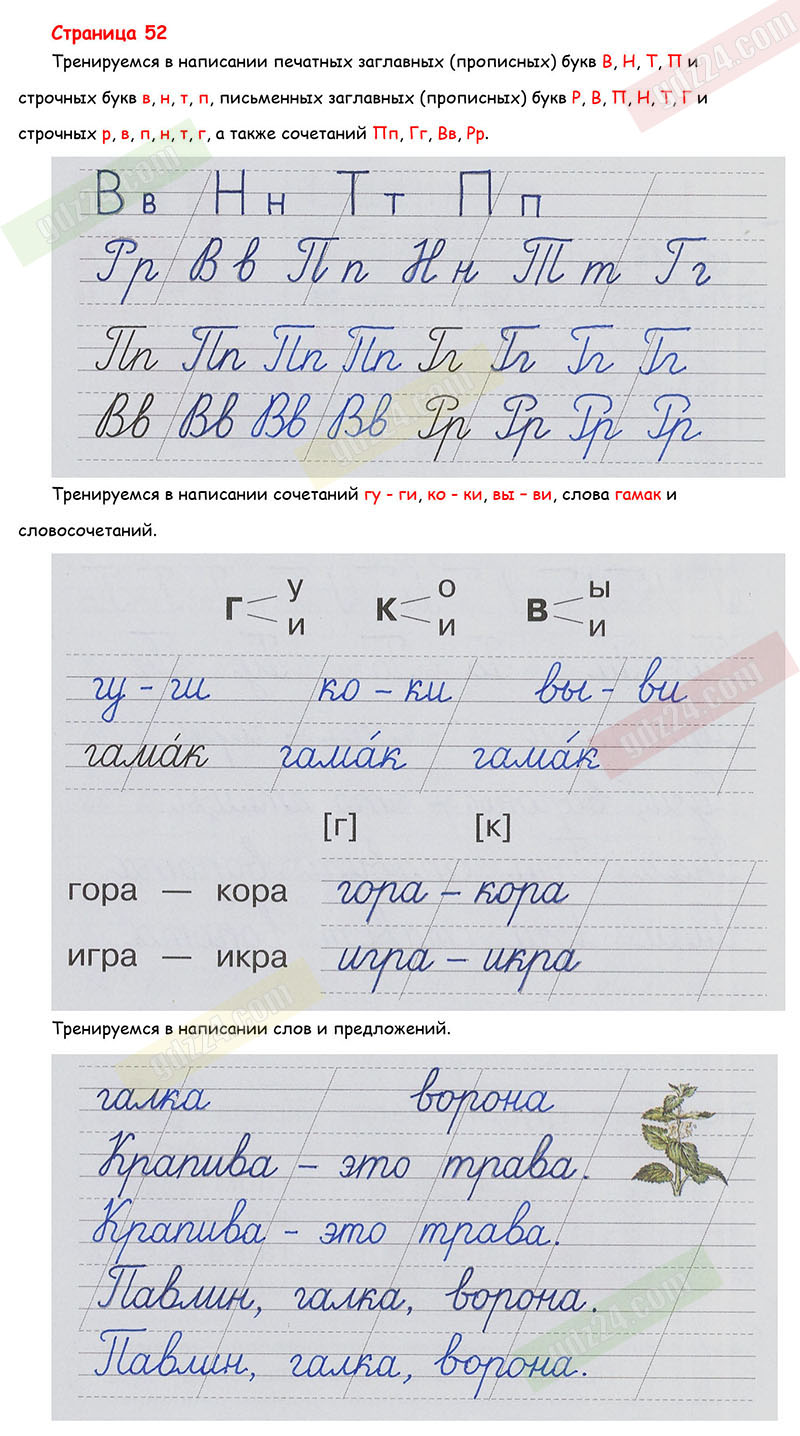 Страница 52
Тренируемся в написании печатных заглавных (прописных) букв В, Н, Т, П и
строчных букв в, н, т, п, письменных заглавных (прописных) букв Р, В, П, Н, Т, Г и
строчных р, в, п, н, т, г, а также сочетаний Пп, Гг, Вв, Рр.
В в Н н Т т П п
Рр В в П п Н н Т т Г г
Пп Пп Пп Пп Гг Гг Гг Гг
Вв Вв Вв Вв Рр Рр Рр Рр
Тренируемся в написании сочетаний гу - ги, ко - ки, вы – ви, слова гамак и
словосочетаний.
у о ы
Г К В
и и и
гу - ги ко - ки вы - ви
гама́к гама́к гама́к
[г] [к]
гора — кора гора – кора
игра — икра игра – икра
Тренируемся в написании слов и предложений.
галка ворона
Крапива – это трава.
Крапива - это трава.
Павлин, галка, ворона.
Павлин, галка, ворона.
gdz24.com
gdz24.com
gdz24.com
gdz24.com
gdz24.com
gdz24.com